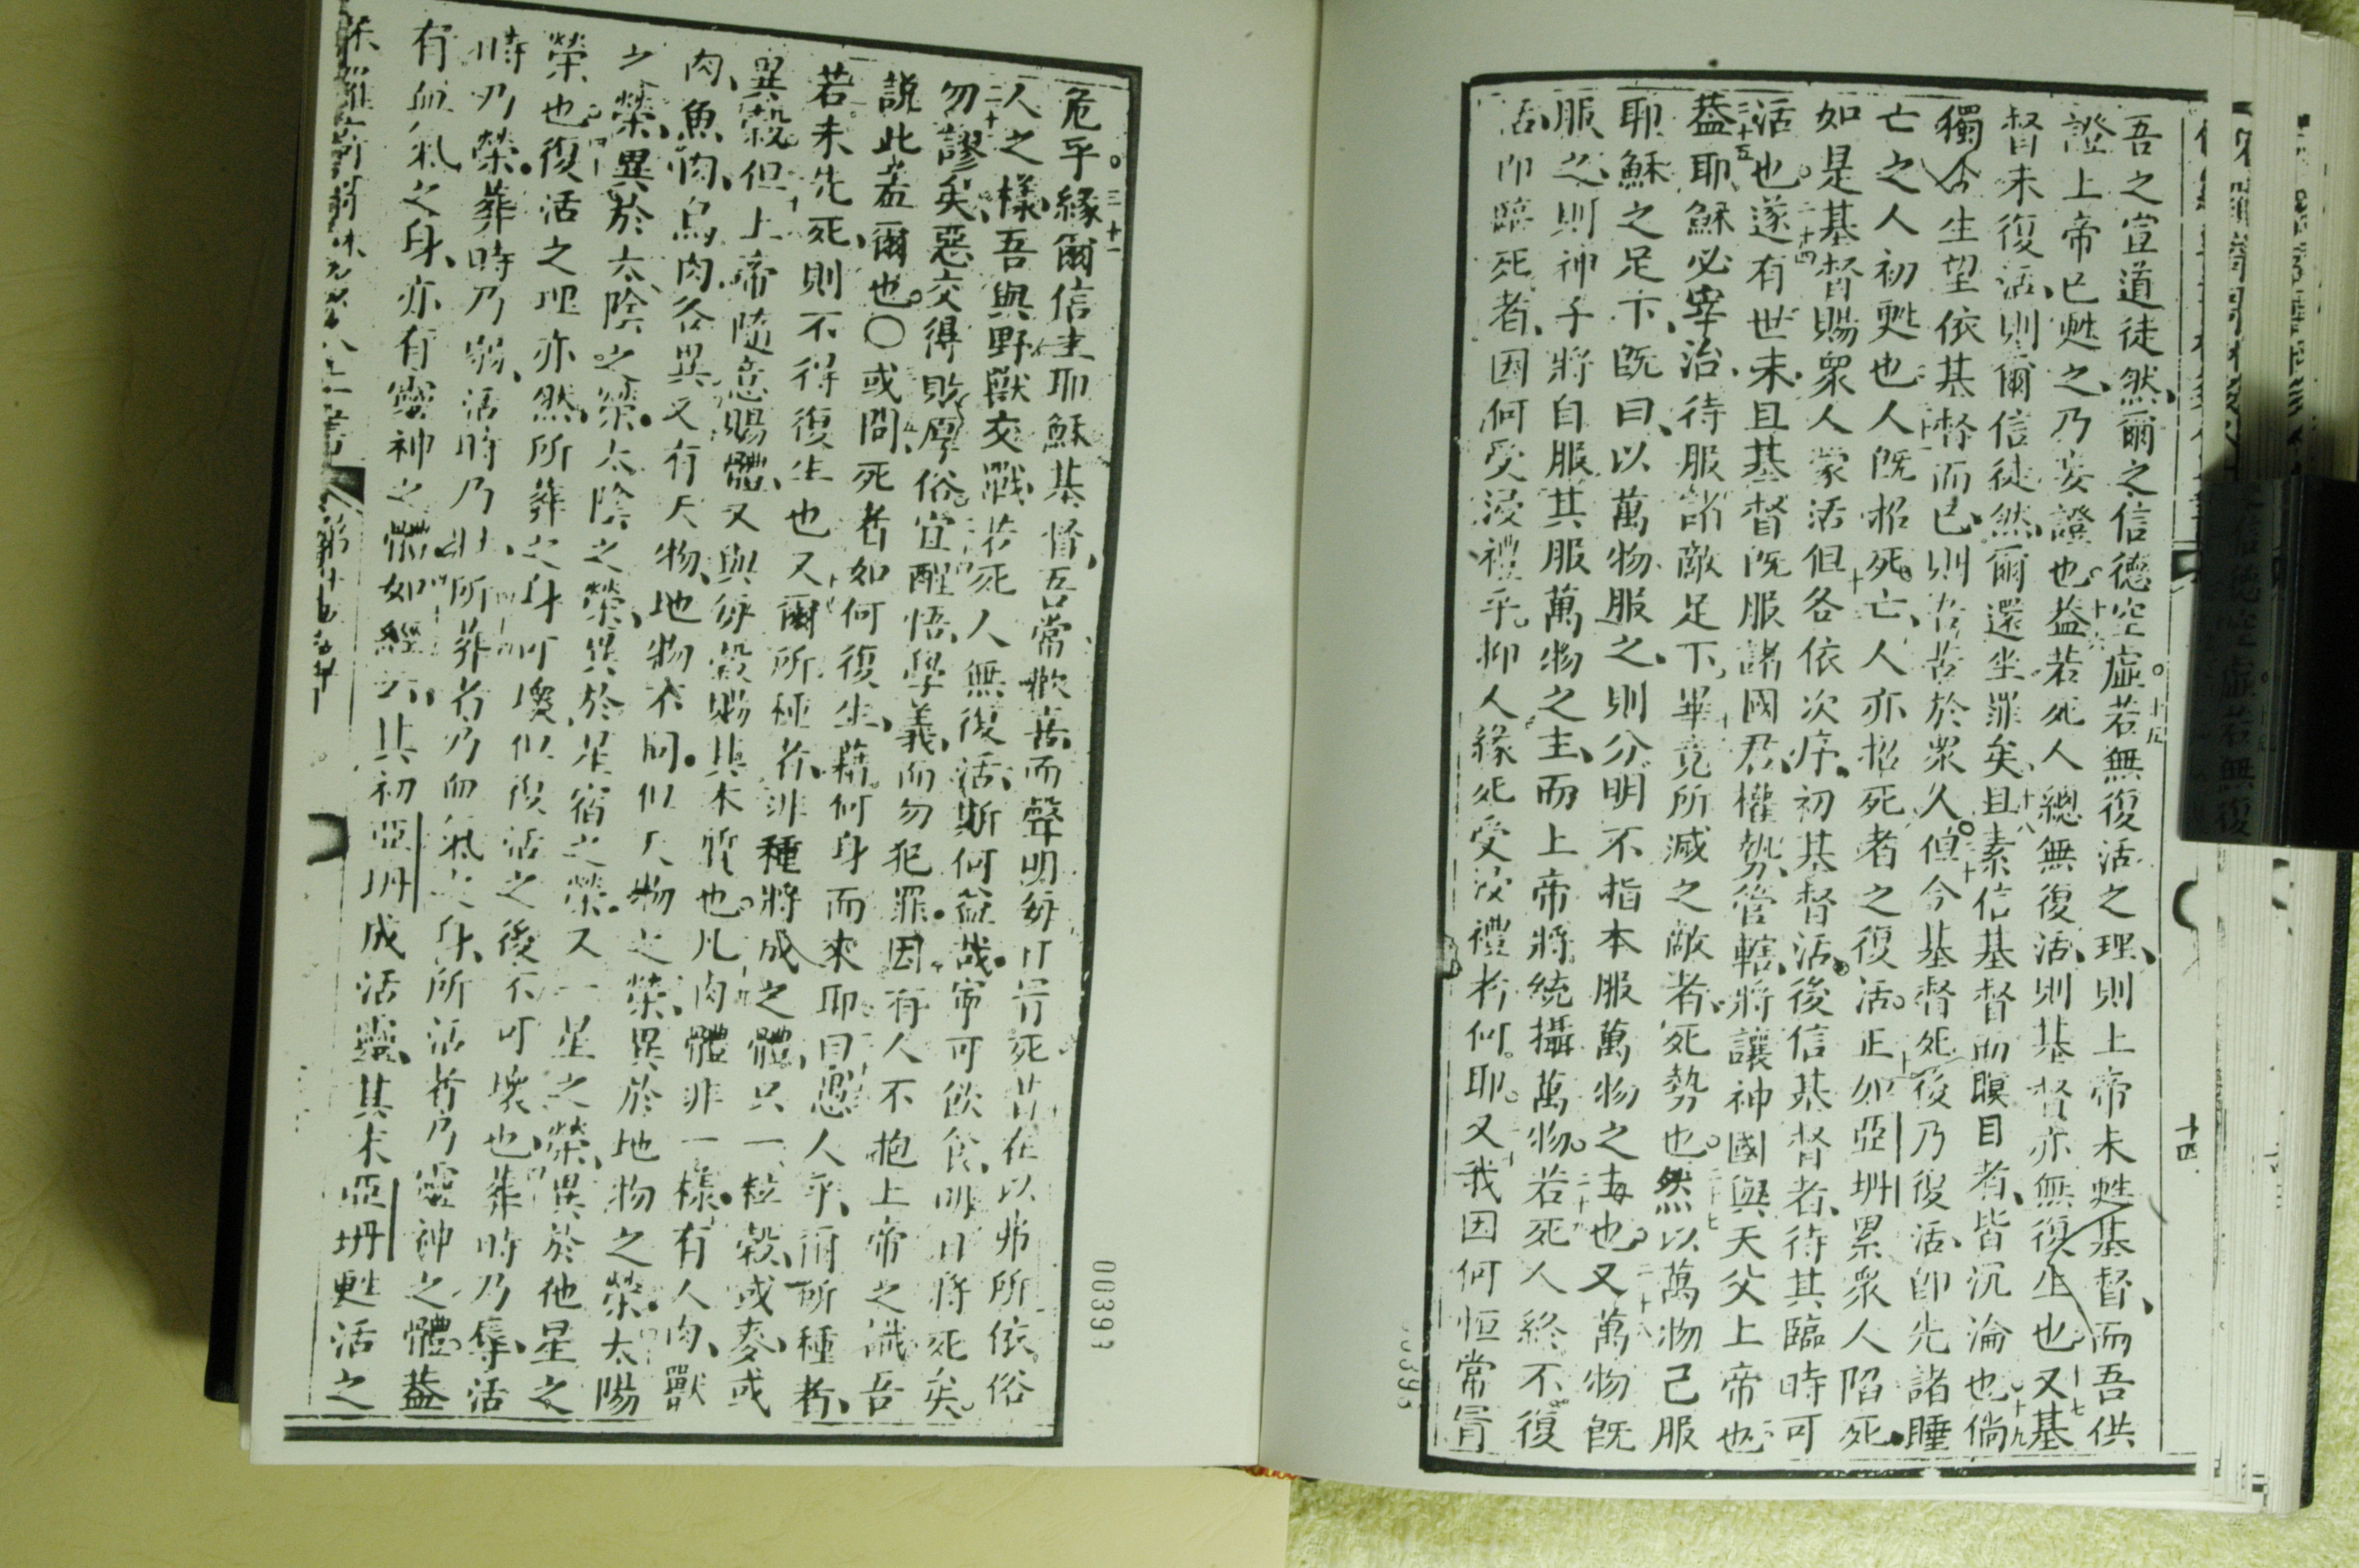 吾之宣道徒然、爾之信德空虛。十五若無復活之理、則上帝未甦基督、而吾供
證上帝已甦之、乃妄證也。十六蓋若死人總無復活、則基督亦無復生也。十七又基
督未復活、則爾信徒然、爾還坐罪矣、十八且素信基督而瞑目者、皆沉淪也。十九倘
獨今生望依基督而已、則吾苦於眾人。二十但今基督死後乃復活、即先諸睡
亡之人初甦也。人既招死亡、人亦招死者之復活。正如亞坍累眾人陷死。
如是基督賜眾人蒙活。但各依次序。初基督活。後信基督者、待其臨時可
活也。二十四遂有世末、且基督既服諸國君、權勢、管轄、將讓神國與天父上帝也。
二十五蓋耶穌必宰治、待服諸敵足下、畢竟所滅之敵者、死勢也。二十七然以萬物已服
耶穌之足下、既曰、以萬物服之、則分明不指本服萬物之主也。二十八又萬物既
服之、則神子將自服其服萬物之主、而上帝將統攝萬物。二十九若死人終不復
活、即臨死者、因何受浸禮乎。抑人緣死受浸禮者何。耶。又我因何恒常冒
十四
危乎。三十一緣爾信主耶穌基督、吾常歡喜而聲明每日冒死。若在以弗所依俗
人之樣、吾與野獸交戰、若死人無復活、斯何益哉。寧可飲食、明日將死矣。
勿謬矣、惡交得敗厚俗。宜醒悟學義、而勿犯罪。因有人不抱上帝之識、吾
說此羞爾也。〇或問、死者如何復生、藉何身而來耶。曰、愚人乎、爾所種者、
若未先死、則不得復生也。又爾所種者、非種將成之體、只一粒穀、或麥、或
異穀。但上帝隨意賜體、又與每穀賜其本質也。凡肉體非一樣。有人肉、獸
肉、魚肉、鳥肉各異。又有天物、地物不同。但天物之榮、異於地物之榮。太陽
之榮、異於太陰之榮。太陰之榮、異於星宿之榮。又一星之榮、異於他星之
榮也。復活之理亦然。所葬之身可壞、但復活之後不可壞也。葬時乃辱、活
時乃榮。葬時乃弱、活時乃壯、所葬者乃血氣之身、所活者乃靈神之體。蓋
有血氣之身、亦有靈神之體。如經云、其初亞坍成活靈、其末亞坍甦活之
00393